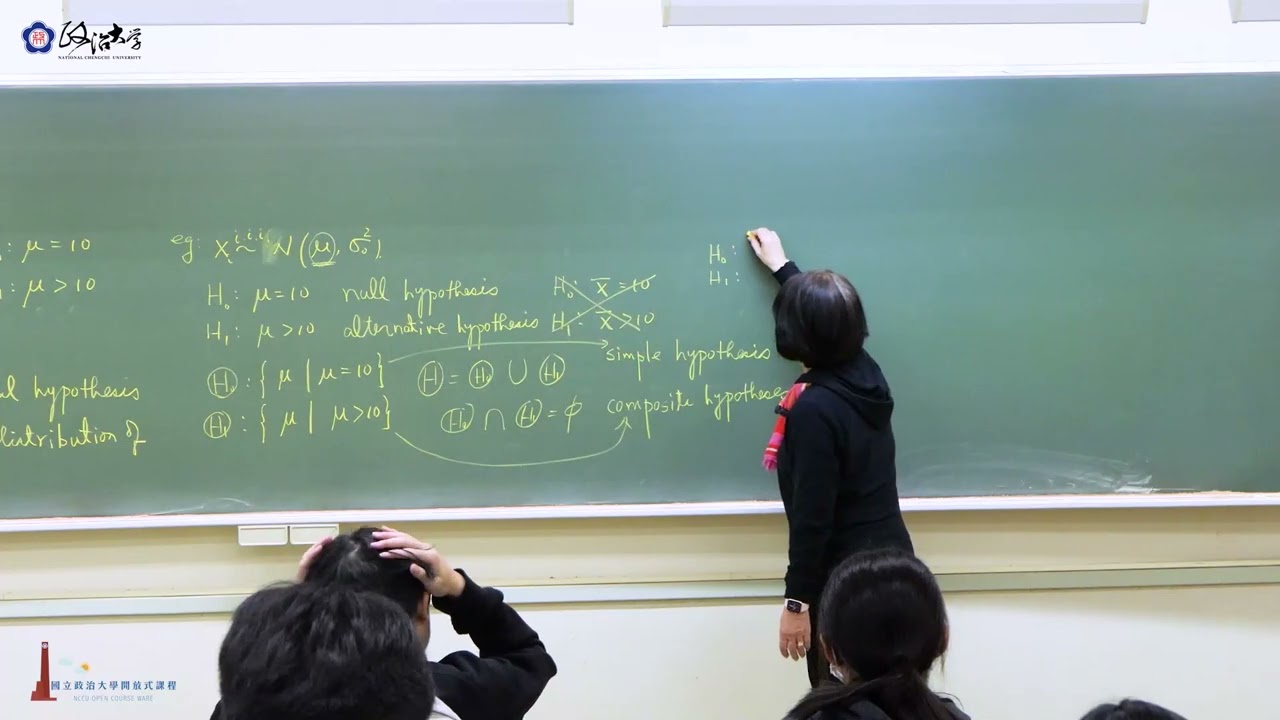 政治大學
NATIONAL CHENGCHI UNIVERSITY
: μ = 10
: μ > 10
hypothesis
distribution of
eg: Xᵢ ~ⁱ·ⁱ·ⁱ N(μ, σ₀²)
H₀: μ = 10 null hypothesis
H₁: μ > 10 alternative hypothesis
Ⓗ₀: { μ | μ = 10 }
Ⓗ₁: { μ | μ > 10 }
Ⓗ = Ⓗ₀ ∪ Ⓗ₁
Ⓗ₀ ∩ Ⓗ₁ = φ
H₀: X̄ = 10
H₁: X̄ > 10
simple hypothesis
composite hypotheses
H₀:
H₁:
國立政治大學開放式課程
NCCU OPEN COURSE WARE